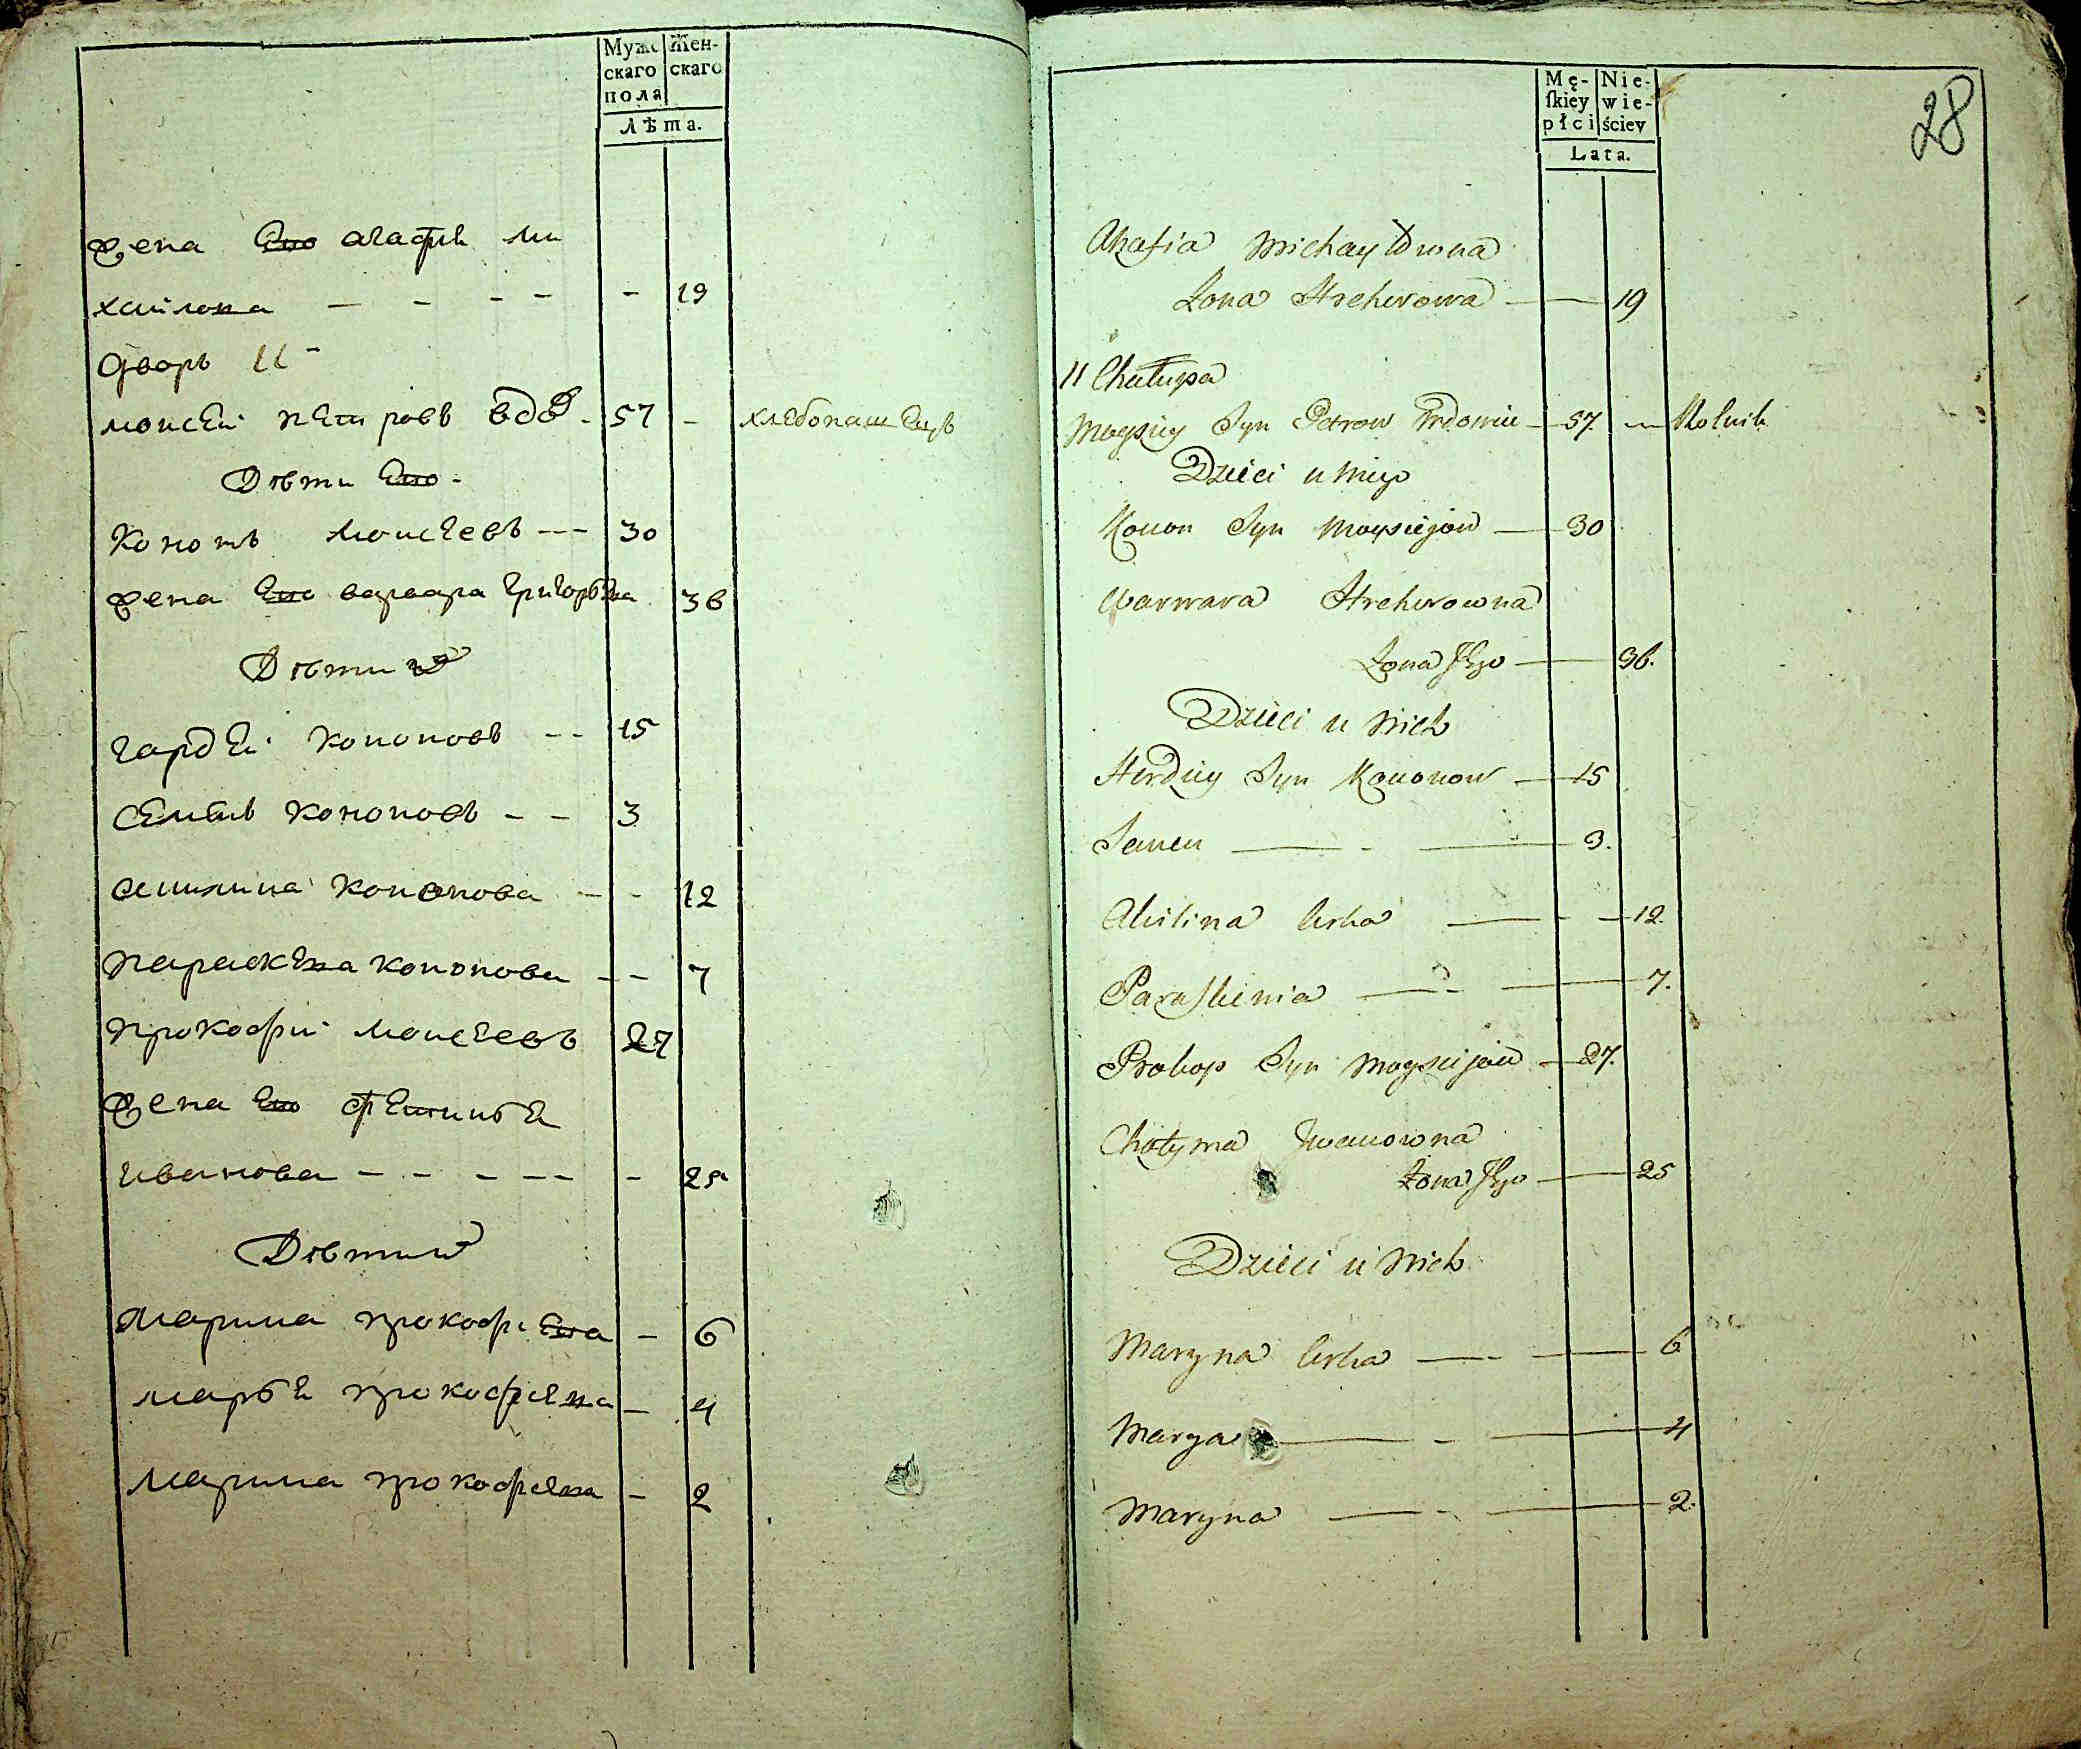 Мужс
скаго
пола
Жен-
скаго
Лѣта.
жена его агафия ми
хайлова — - - - - 19
дворъ 11 -
моисей петровъ вдов - 57 - хлебопашецъ
Дѣти его -
Кононъ Моисеевъ --- 30
жена его варвара григорьева 36
Дѣти их
гардей кононовъ -- 15
Семенъ кононовъ - - 3
акилина кононова - - 12
Параскева кононова - - 7
прокофий моисеевъ 27
жена его фетинья
иванова - - - -- - 25
Дѣти их
Марина прокофиева - 6
марья прокофиева - 4
Марина прокофиева - 2
28
Mę-
ſkiey
płci
Nie-
wie-
ściey
Lata.
Ahafia Michayłowna
Żona Hrehorowa — 19
11 Chałupa
Moysiey Syn Petrow Wdowiec — 57 — Rolnik
Dzieci u niego
Konon Syn Moysiejow — 30
Warwara Hrehorowna
Żona Jego — 36.
Dzieci u nich
Hordiey Syn Kononow — 15
Semen — - — 3.
Akilina Corka — - — 12.
Paraskiewia — - — 7.
Prokop Syn Moysiejow — 27.
Chotyma Iwanowna
Żona Jego — 25
Dzieci u nich
Maryna Corka — - — 6
Marya — - — 4
Maryna — - — 2.